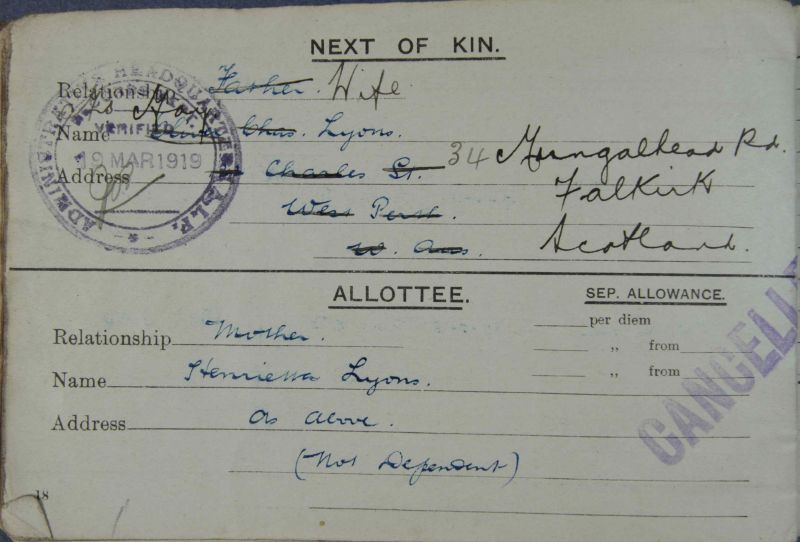 NEXT OF KIN.
Relationship Father. Wife
Name May Chas. Lyons.
Address Charles St. 34 Mungalhead Rd.
West Perth. Falkirk
W. Aus. Scotland.
ADMINISTRATIVE HEADQUARTERS A.I.F.
VERIFIED
19 MAR 1919
ALLOTTEE.
SEP. ALLOWANCE.
Relationship Mother.
per diem
Name Henrietta Lyons.
„ from
„ from
Address As above.
(Not Dependent)
CANCELL
18